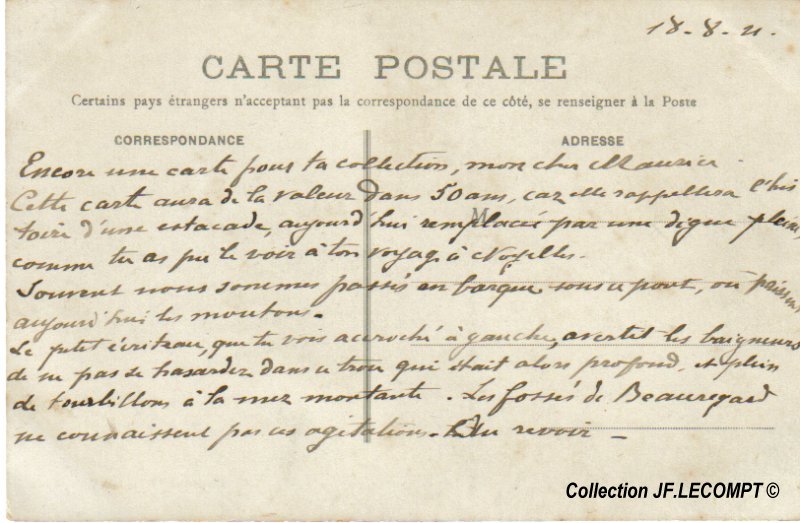 18-8-21.
CARTE POSTALE
Certains pays étrangers n'acceptant pas la correspondance de ce côté, se renseigner à la Poste
CORRESPONDANCE
ADRESSE
Encore une carte pour ta collection, mon cher Maurice.
Cette carte aura de la valeur dans 50 ans, car elle rappellera l'his
toire d'une estacade, aujourd'hui remplacée par une digue pleine,
M
comme tu as pu le voir à ton voyage à Noyelles.
Souvent nous sommes passés en barque sous ce pont, où paissent
aujourd'hui les moutons.
Le petit écriteau, que tu vois accroché à gauche, avertit les baigneurs
de ne pas se hasarder dans ce trou qui était alors profond, et plein
de tourbillons à la mer montante. Les fossés de Beauregard
ne connaissent pas ces agitations. Au revoir -
Collection JF.LECOMPT ©